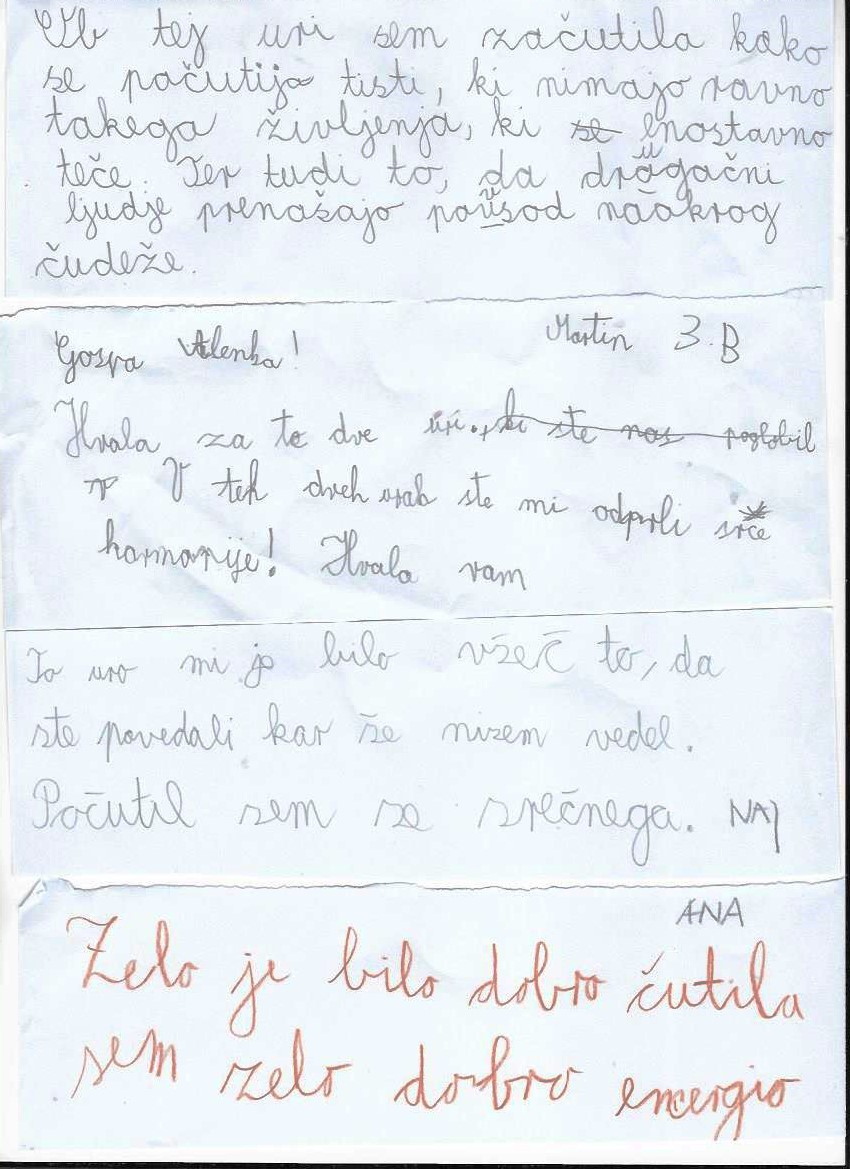 Ob tej uri sem začutila kako
se počutijo tisti, ki nimajo ravno
takega življenja, ki se enostavno
teče. Ter tudi to, da drugačni
ljudje prenašajo povsod naokrog
čudeže.
Martin 3.B
Gospa Alenka!
Hvala za te dve uri., ki ste nas poglobil
V V teh dveh urah ste mi odprli srce
harmonije! Hvala vam
To uro mi je bilo všeč to, da
ste povedali kar še nisem vedel.
Počutil sem se srečnega. NAJ
ANA
Zelo je bilo dobro čutila
sem zelo dobro energio